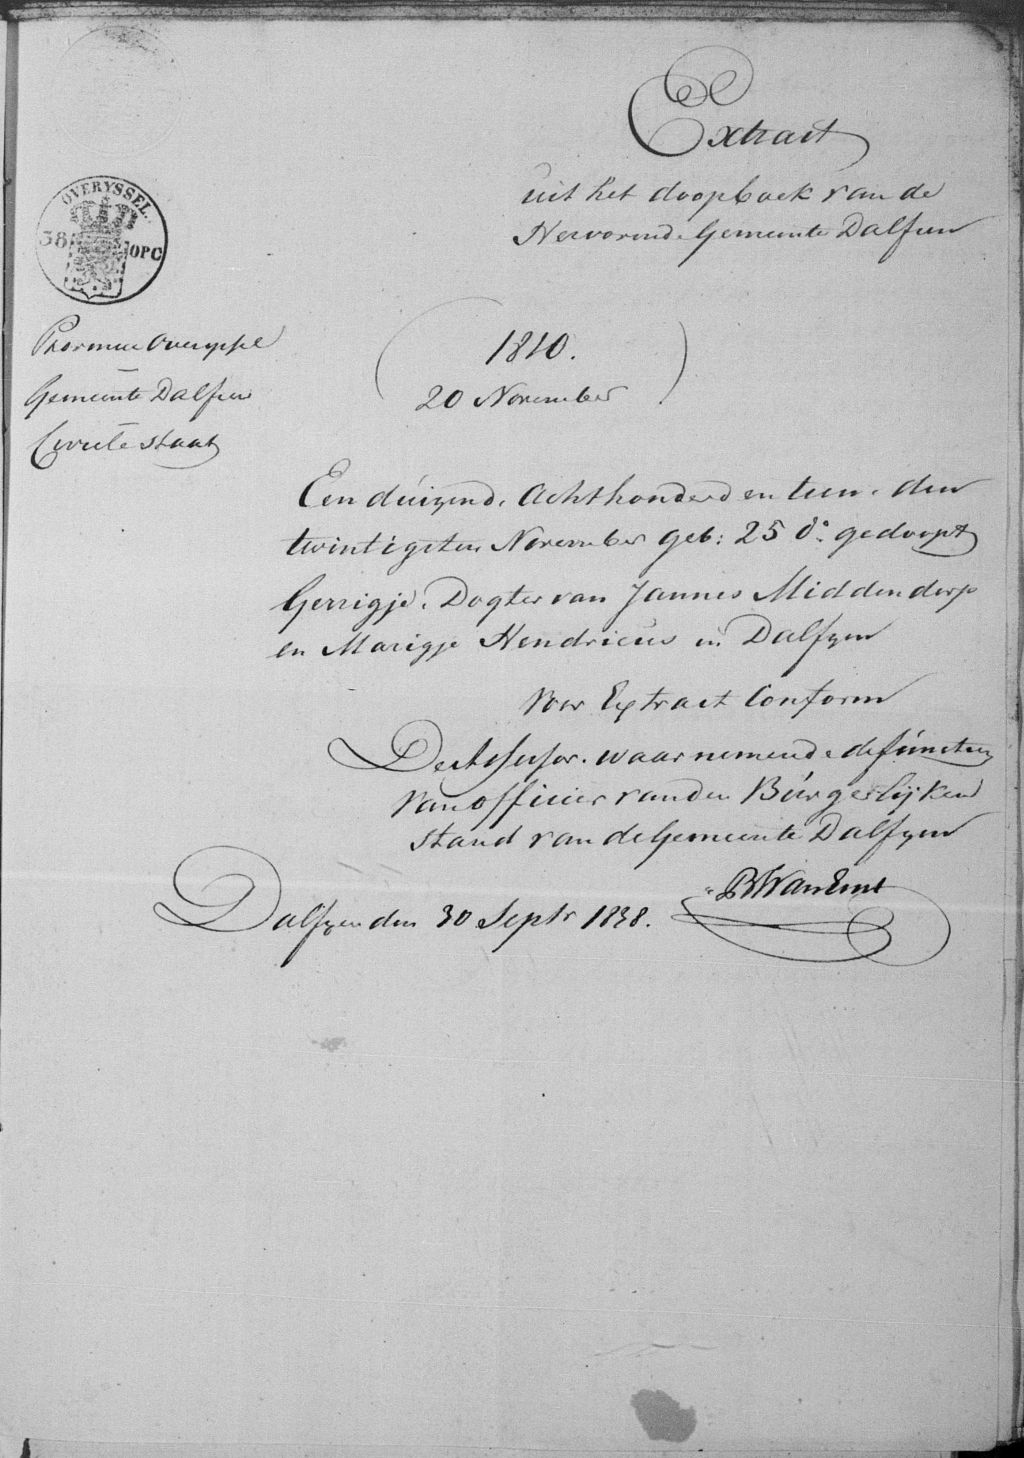 Extract
uit het doopboek van de
Hervormde Gemeente Dalfsen
OVERYSSEL.
38 OPC
Provincie Overyssel
Gemeente Dalfsen
Civiele staat
1810.
20 November
Een duizend. Achthonderd en tien. den
twintigsten November geb: 25 do. gedoopt
Gerrigje. Dogter van Jannes Middendorp
en Marigje Hendricus in Dalfzen
Voor Extract Conform
De Assessor. waarnemende de functien
van officier van den Burgerlijken
stand van de Gemeente Dalfzen
Dalfzen den 30 Septr 1838.